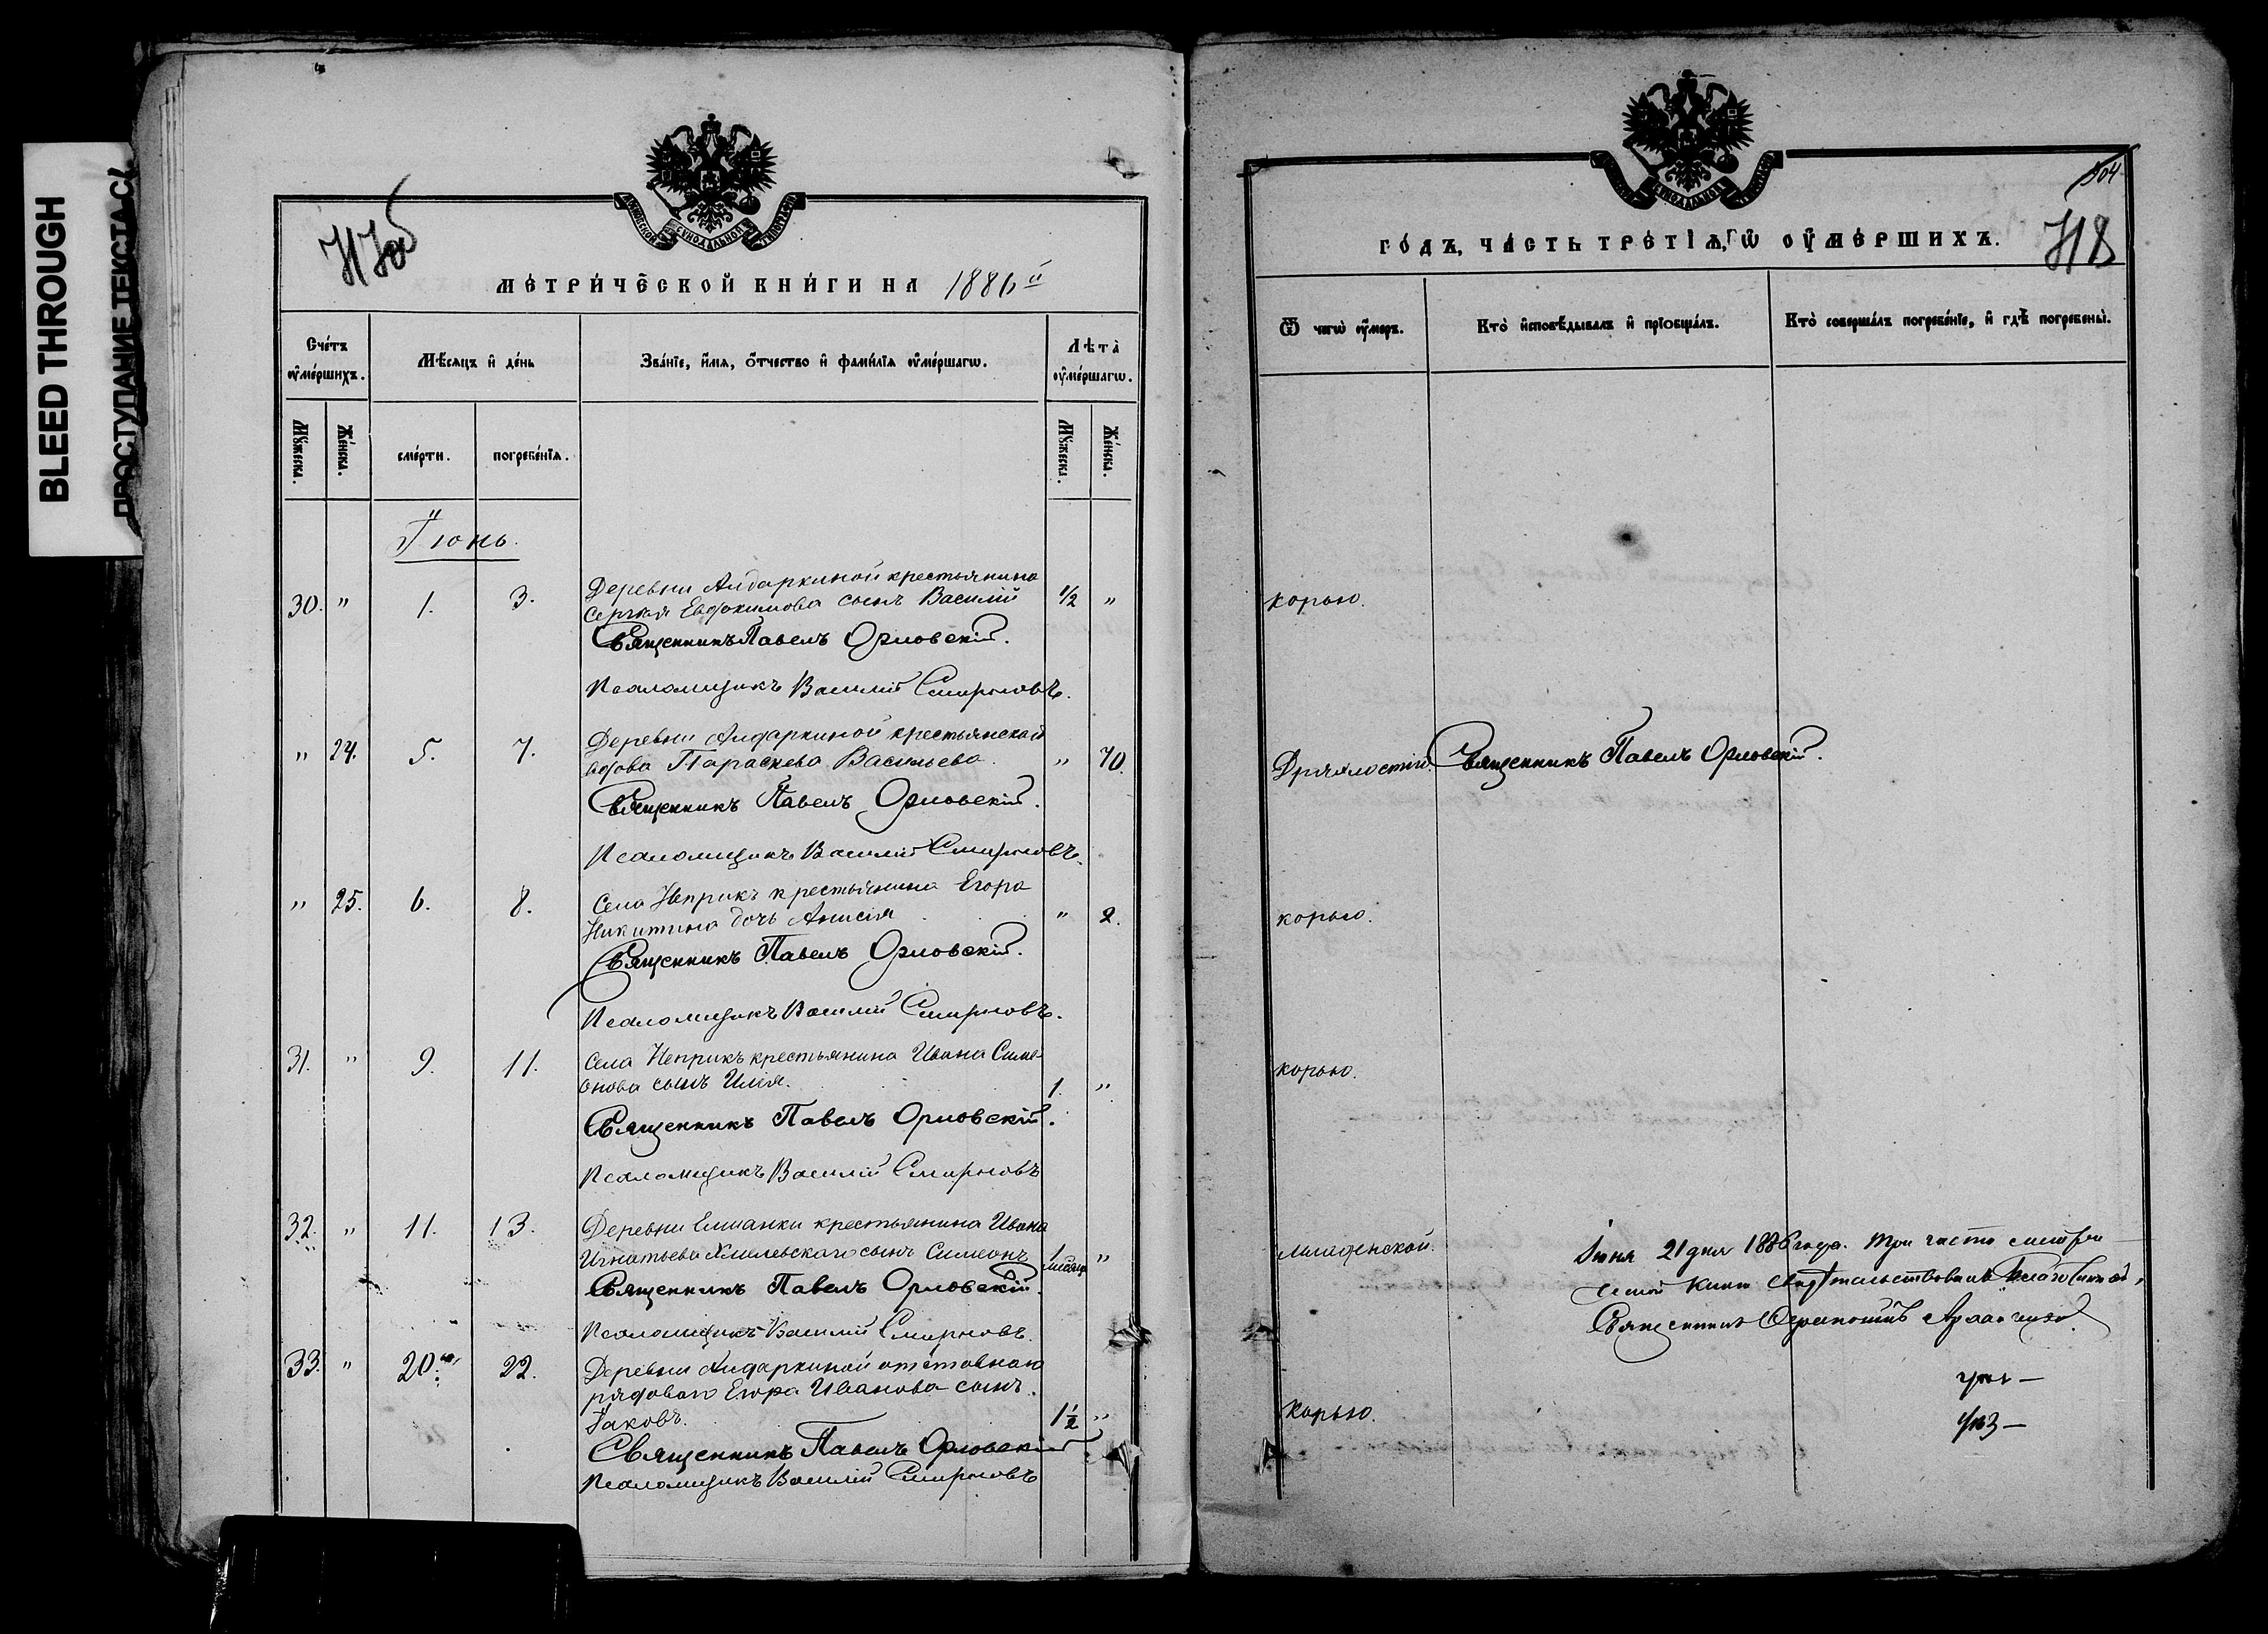 BLEED THROUGH
ПРОСТУПАНИЕ ТЕКСТА С/
МОСКОВСКОЙ СѴНОДАЛЬНОЙ ТИПОГРАФІИ
МЕТРИЧЕСКОЙ КНИГИ НА 1886й
Счетъ ѹмершихъ.
Мѣсяцъ и день
Званіе, имя, отчество и фамилія ѹмершагѡ.
Лѣта ѹмершагѡ.
Мѹжеска.
Женска.
смерти.
погребенія.
Мѹжеска.
Женска.
Іюнь.
30. " 1. 3. Деревни Алдаркиной крестьянина
Сергія Евдокимова сынъ Василій 1/2 "
Священникъ Павелъ Орловскій.
Псаломщикъ Василій Смирновъ.
" 24. 5. 7. Деревни Алдаркиной крестьянская
вдова Параскева Васильева. " 70.
Священникъ Павелъ Орловскій.
Псаломщикъ Василій Смирновъ.
" 25. 6. 8. Села Неприкъ крестьянина Егора
Никитина дочь Анисія " 2.
Священникъ Павелъ Орловскій.
Псаломщикъ Василій Смирновъ.
31. " 9. 11. Села Неприкъ крестьянина Ивана Симе-
онова сынъ Илія. 1. "
Священникъ Павелъ Орловскій.
Псаломщикъ Василій Смирновъ
32. " 11. 13. Деревни Елшанки крестьянина Ивана
Игнатьева Хмелевскаго сынъ Симеонъ 1 мѣсяцъ "
Священникъ Павелъ Орловскій.
Псаломщикъ Василій Смирновъ.
33. " 20. 22. Деревни Алдаркиной отставнаго
рядоваго Егора Иванова сынъ
Іаковъ. 1 1/2 "
Священникъ Павелъ Орловскій
Псаломщикъ Василій Смирновъ
СѴНОДАЛЬНОЙ
504
ГОДЪ, ЧАСТЬ ТРЕТІЯ, Ѡ ОУМЕРШИХЪ.
Ѿ чегѡ ѹмеръ.
Кто исповѣдывалъ и пріобщалъ.
Кто совершалъ погребеніе, и гдѣ погребены.
корью.
Дряхлостію. Священникъ Павелъ Орловскій.
корью.
корью.
Младенской.
Іюня 21 дня 1886 года. Три части метри
ческой книги свидѣтельствовалъ Благочинный,
Священникъ
Корью.